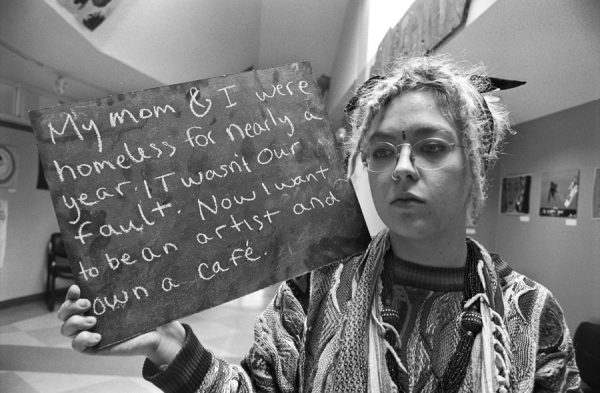 My mom & I were
homeless for nearly a
year. IT wasn't our
fault. Now I want
to be an artist and
own a café.